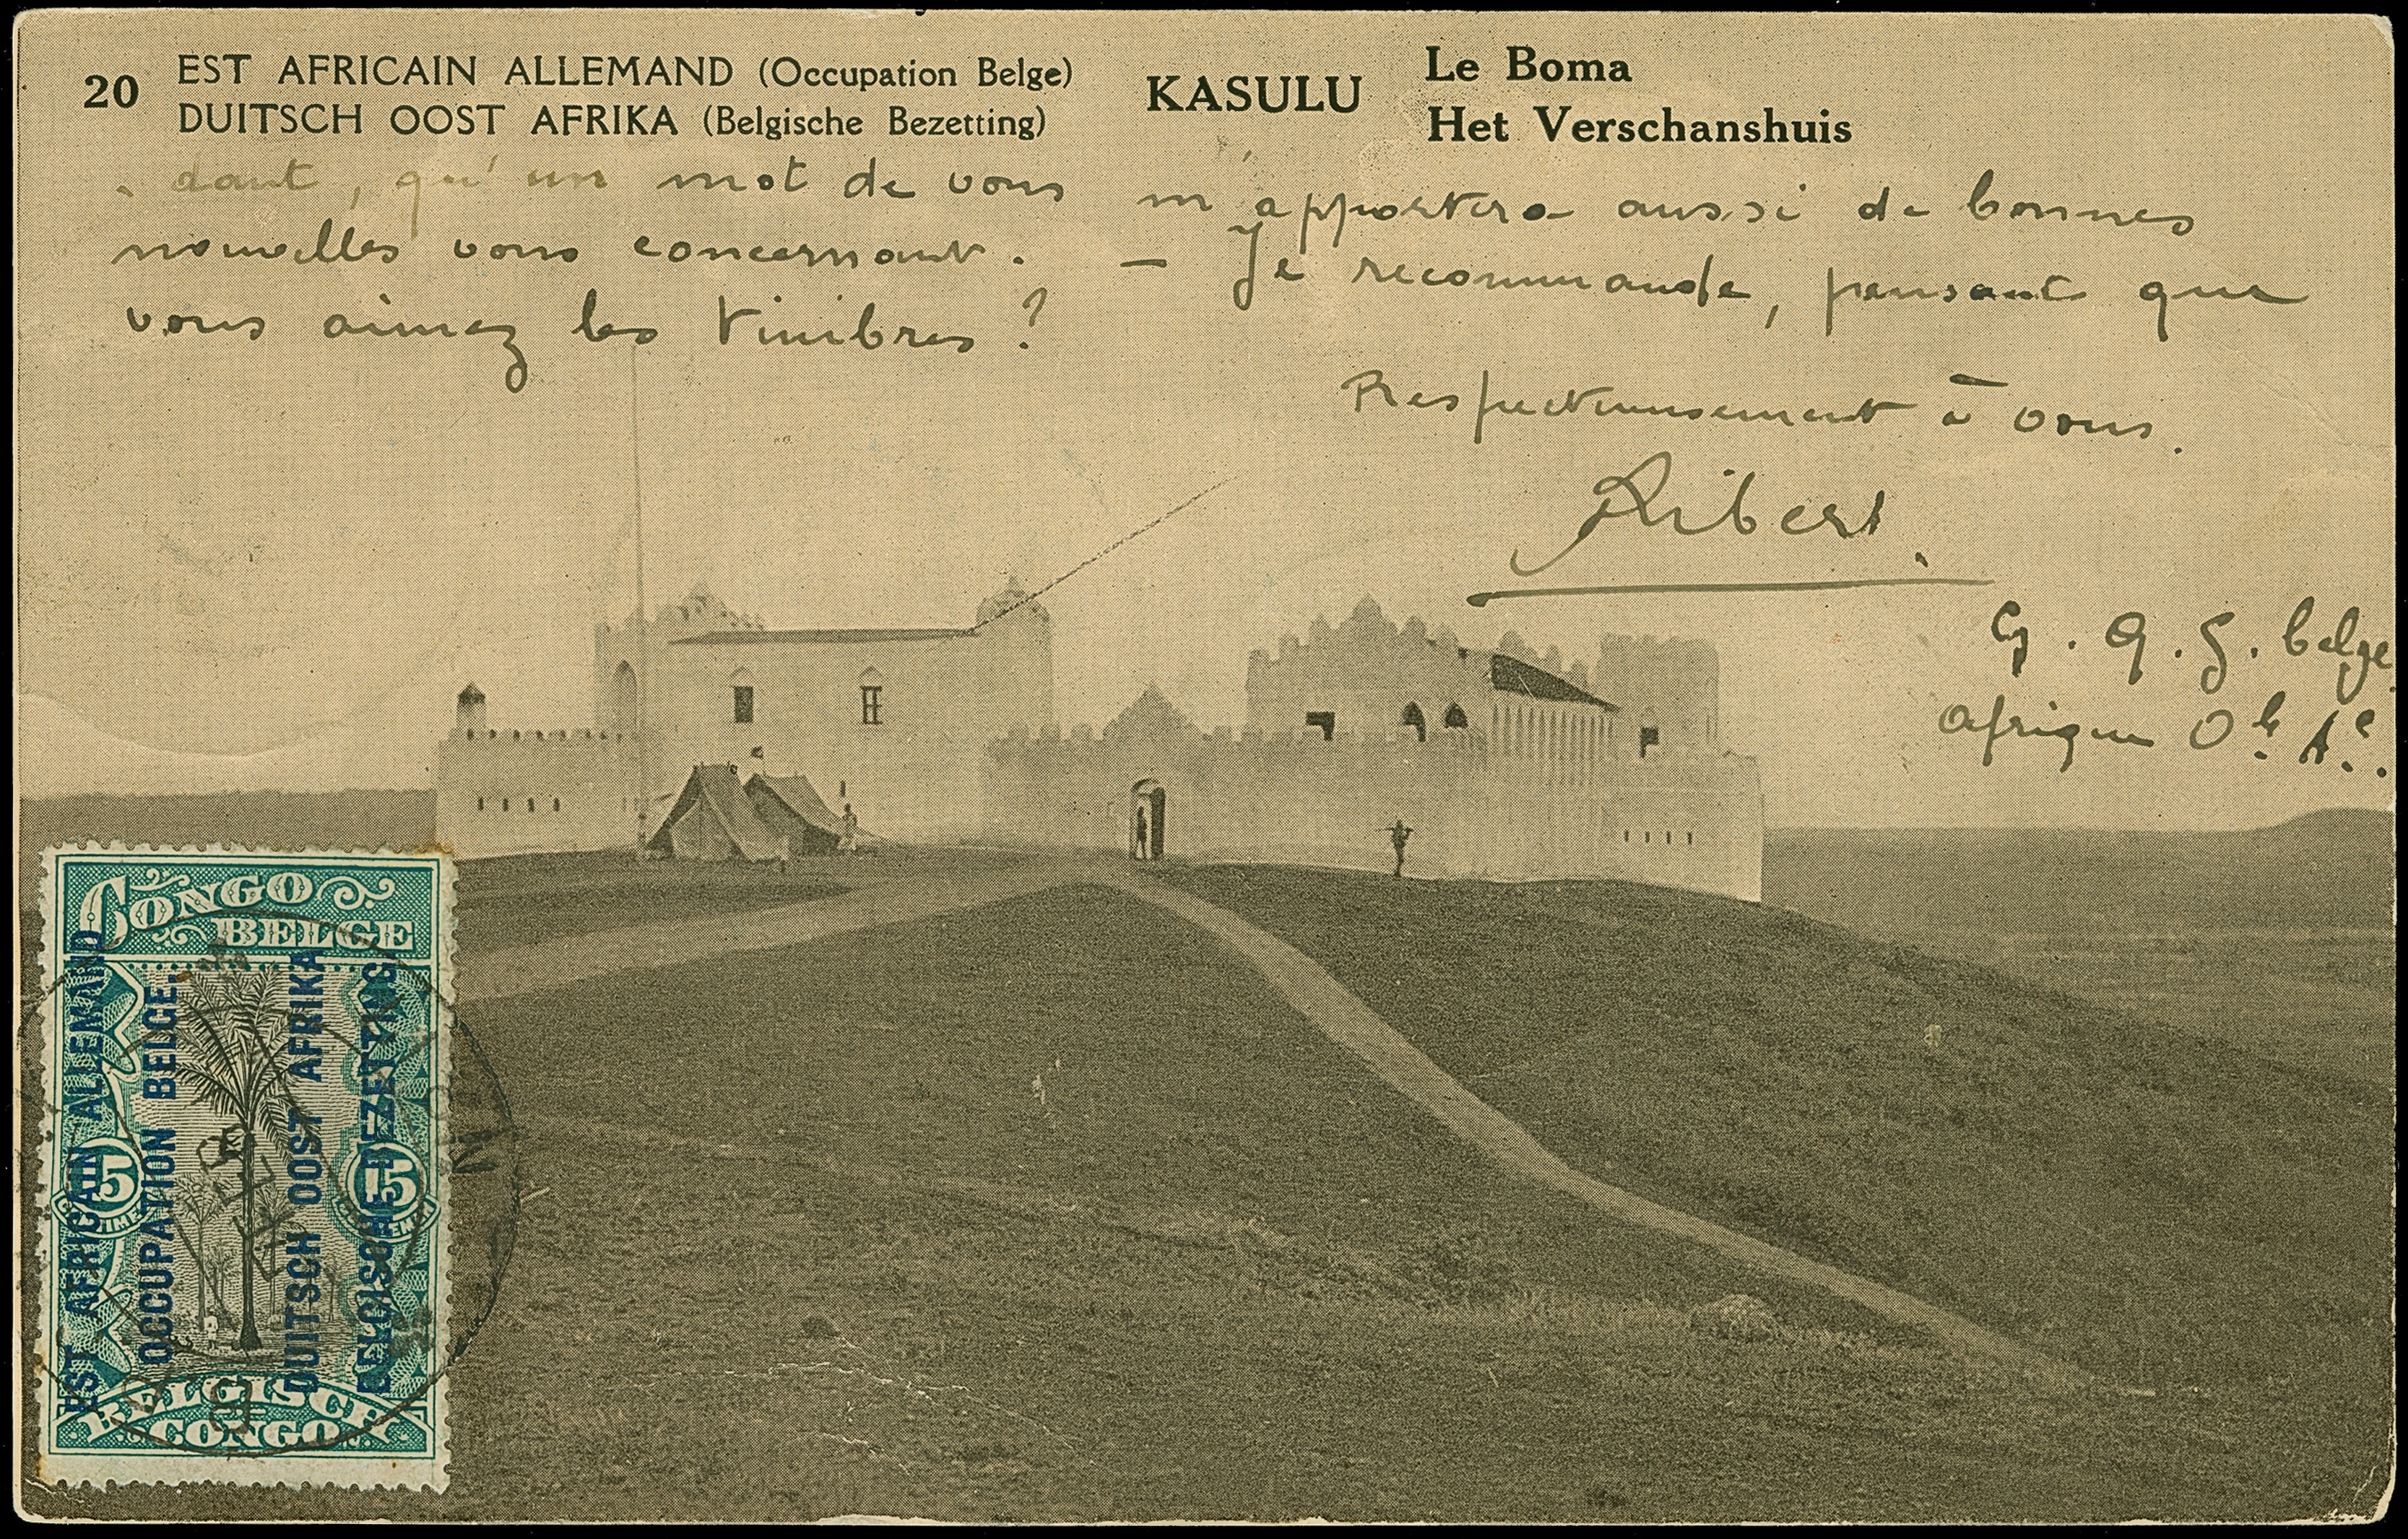 20
EST AFRICAIN ALLEMAND (Occupation Belge)
DUITSCH OOST AFRIKA (Belgische Bezetting)
KASULU
Le Boma
Het Verschanshuis
dant, qu'un mot de vous m'apportera aussi de bonnes
nouvelles vous concernant. – Je recommande, pensant que
vous aimez les timbres ?
Respectueusement à vous.
Ribert
G. Q. G. belge
Afrique
CONGO
BELGE
EST AFRICAIN ALLEMAND
OCCUPATION BELGE.
DUITSCH OOST AFRIKA
BELGISCHE BEZETTING
5
15
BELGISCH
CONGO